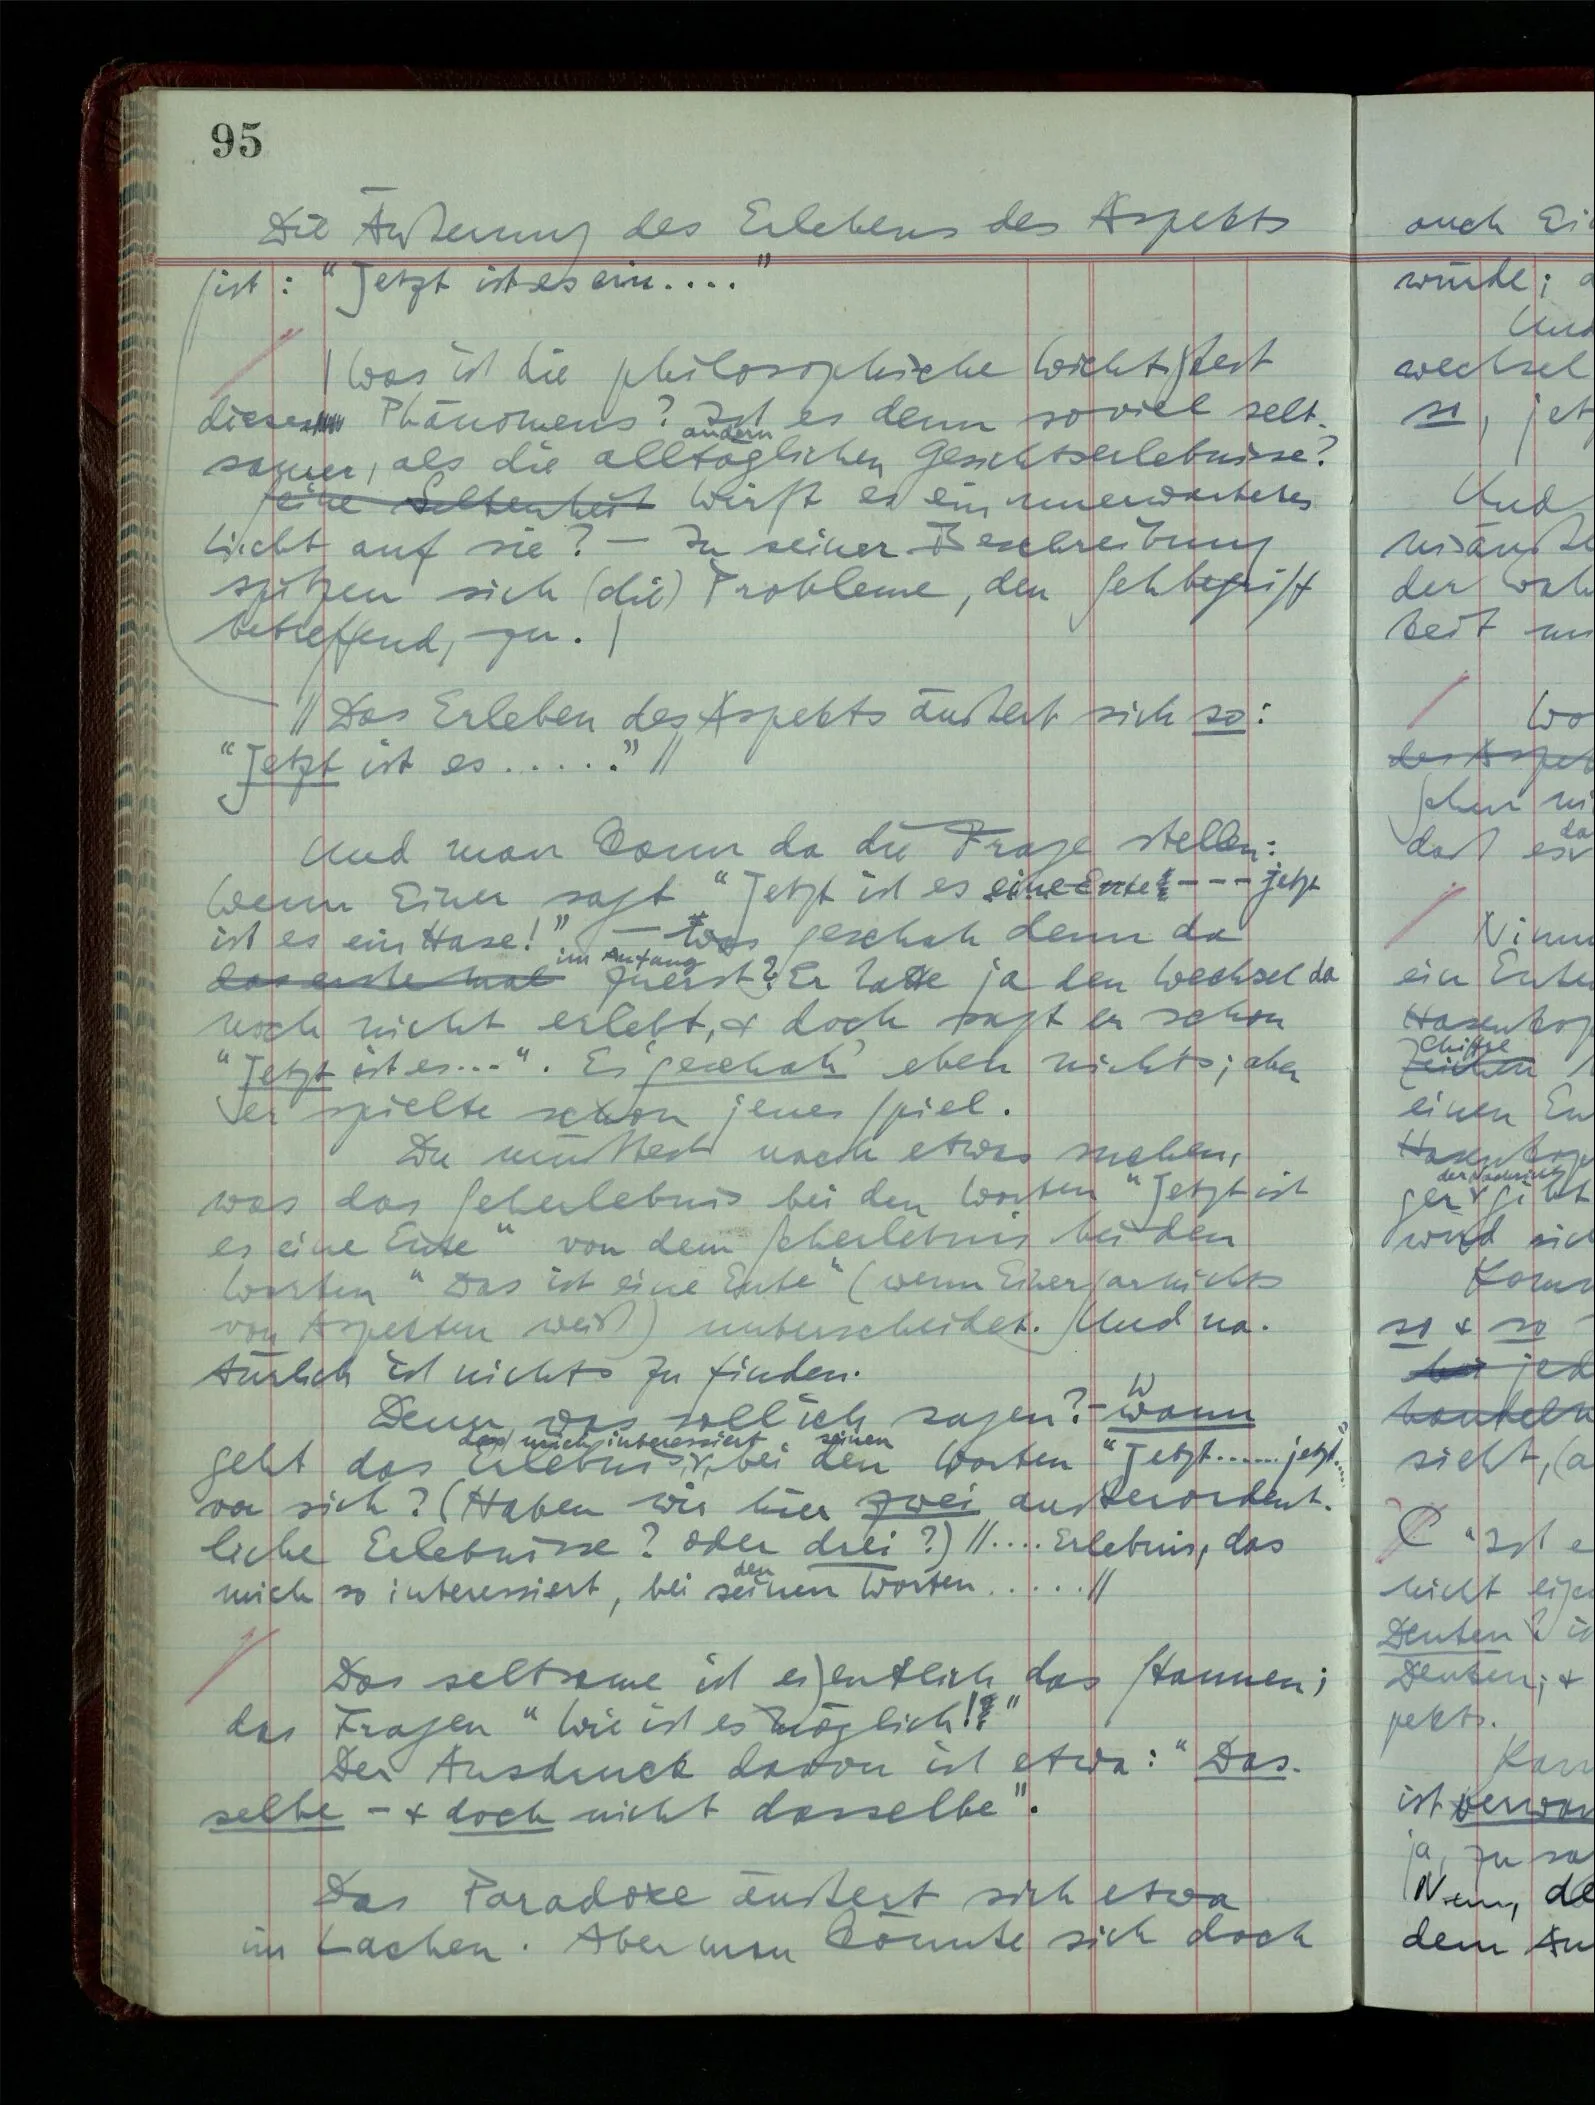 95
Die Äußerung des Erlebens des Aspekts
ist: "Jetzt ist es ein...."
/ Was ist die philosophische Wichtigkeit
dieses Phänomens? Ist es denn soviel selt-
andern
samer, als die alltäglichen Gesichtserlebnisse?
Seine Seltenheit Wirft es ein unerwartetes
Licht auf sie? – In seiner Beschreibung
spitzen sich (die) Probleme, den Sehbegriff
betreffend, zu. /
// Das Erleben des Aspekts äußert sich so:
"Jetzt ist es ......" //
Und man kann da die Frage stellen:
Wenn Einer sagt "Jetzt ist es eine Ente --- jetzt
ist es ein Hase!" – Was geschah denn da
im Anfang
das erste Mal zuerst? Er hatte ja den Wechsel da
noch nicht erlebt, & doch sagt er schon
"Jetzt ist es...". Es 'geschah' eben nichts; aber
er spielte schon jenes Spiel.
Du müßtest nach etwas suchen,
was das Seherlebnis bei den Worten "Jetzt ist
es eine Ente" von dem Seherlebnis bei den
Worten "Das ist eine Ente" (wenn Einer gar nichts
von Aspekten weiß) unterscheidet. Und na-
türlich ist nichts zu finden.
W
Denn was soll ich sagen? – wann
das mich interessiert seinen
geht das Erlebnis, bei den Worten "Jetzt...... jetzt....."
vor sich? (Haben wir hier zwei außerordent-
liche Erlebnisse? oder drei?) //.... Erlebnis, das
den
mich so interessiert, bei seinen Worten ..... //
Das seltsame ist eigentlich das Staunen;
das Fragen "Wie ist es möglich!"
Der Ausdruck davon ist etwa: "Das-
selbe – & doch nicht dasselbe".
Das Paradoxe äußert sich etwa
im Lachen. Aber man könnte sich doch
auch
würde;
Und
wechsel
so, jet
Und
der
heit
Wo
sehen
da
daß es
ein Ente
Chiffre
Zeichen
einen En
wird sich
so & so
jed
sieht, (a
"Ist e
nicht eige
Deuten?
Deuten; &
pekts.
Kann
ist verwan
ja, zu sa
Nein, de
dem Au